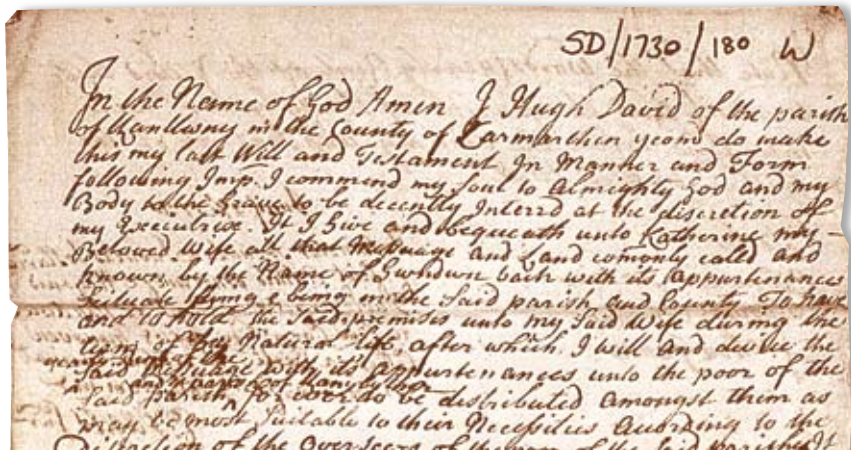 SD/1730/180 W
In the Name of God Amen I Hugh David of the parish
of Llanllwny in the County of Carmarthen yeom do make
this my last Will and Testament In Manner and Form
following Imp. I commend my Soul to Almighty God and my
Body to the Grave to be decently Interrd at the discretion of
my Executrixe. It I Give and bequeath unto Katherine my
Beloved wife all that Messuage and Land comonly called and
known by the Name of Gwndwn bach with its appurtenances
Scituate lying & being in the said parish and County To have
and to hold the said premises unto my said Wife during the
term of her Natural life, after which I will and devise the
said Messuage with its appurtenances unto the poor of the
said parish for ever to be distributed amongst them as
may be most Suitable to their Necessities according to the
Discretion of the Overseers of the poor of the said parish It